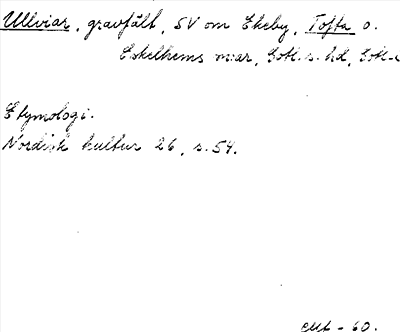 Ulwiar, gravfält, SV om Ekeby, Tofta o.
Eskelhems m:ar, Gotl. s. hd, Gotl.
Etymologi.
Nordisk kultur 26, s. 54.
60.